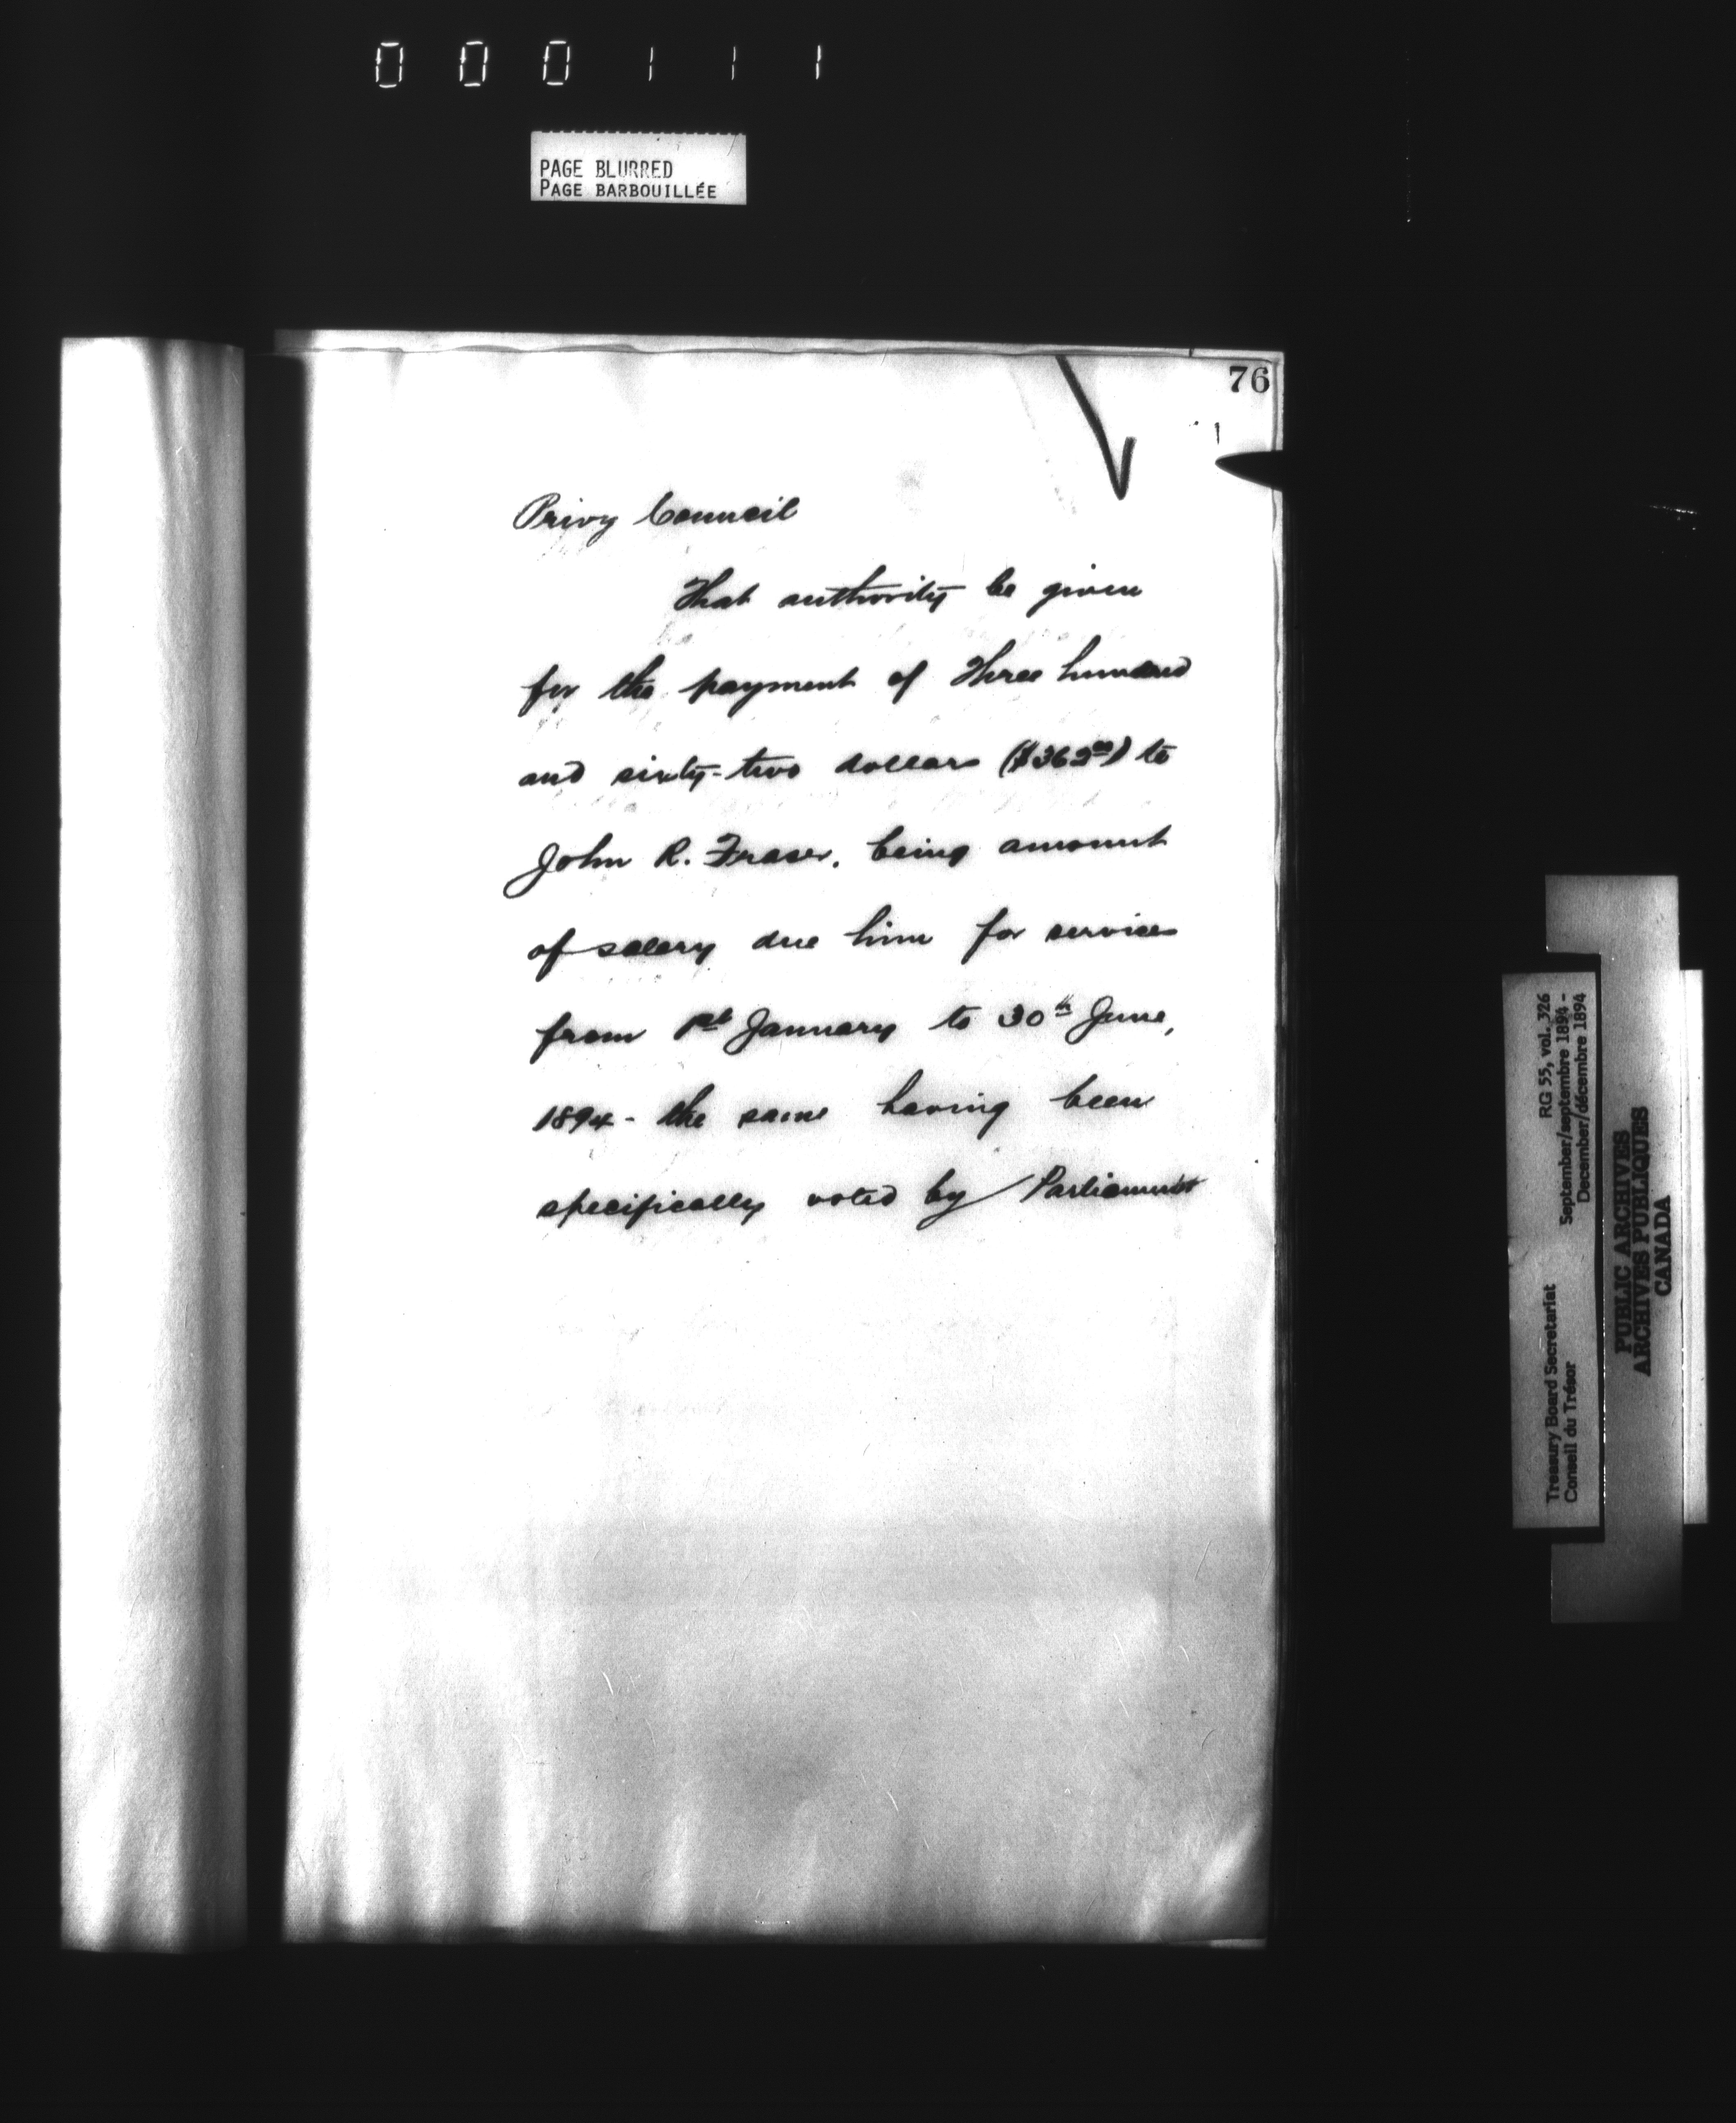 000111
PAGE BLURRED
PAGE BARBOUILLÉE
76
Privy Council
That authority be given
for the payment of Three hundred
and sixty-two dollars ($362.00) to
John R. Fraser, being amount
of salary due him for services
from 1st January to 30th June,
1894 - the same having been
specifically voted by Parliament
RG 55, vol. 326
September/septembre 1894 -
December/décembre 1894
Treasury Board Secretariat
Conseil du Trésor
PUBLIC ARCHIVES
ARCHIVES PUBLIQUES
CANADA